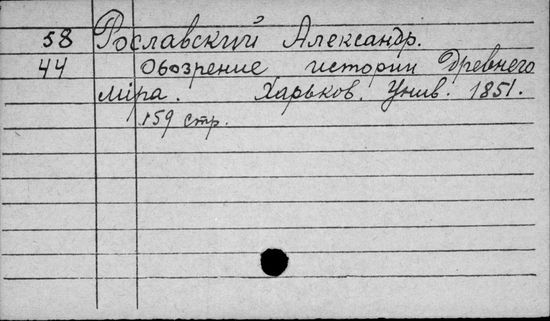 58 Рославский Александр.
44 Обозрение истории Древнего
мiра. Харьков. Унив. 1851.
159 стр.